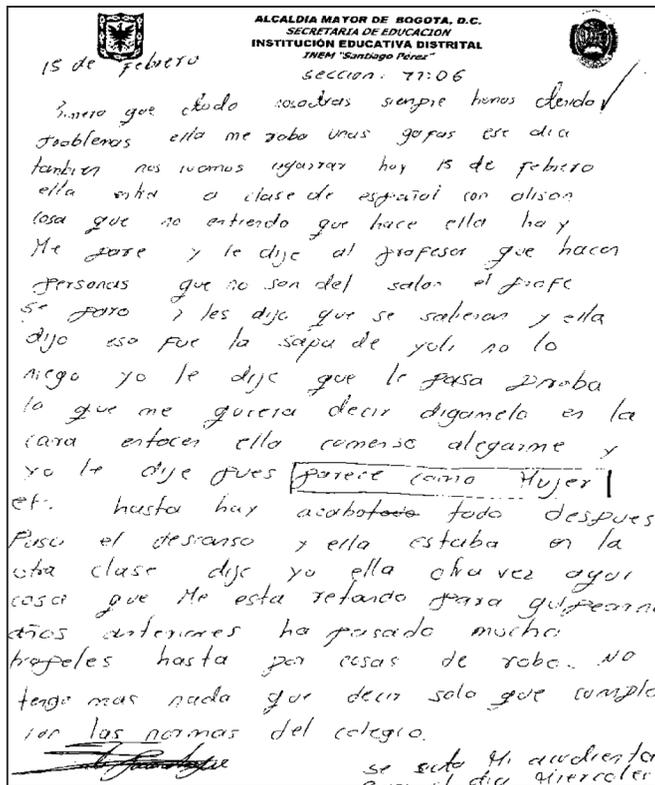 ALCALDIA MAYOR DE BOGOTA, D.C.
SECRETARIA DE EDUCACION
INSTITUCIÓN EDUCATIVA DISTRITAL
INEM "Santiago Pérez"
15 de Febrero
seccion: 11:06
que todo nosotras siempre hemos tenido
problemas ella me robo unas gafas ese dia
tambien nos ivamos agarrar hoy 15 de febrero
ella entra a clase de español con alison
cosa que no entiendo que hace ella hay
Me pare y le dije al profesor que hacen
personas que no son del salon el profe
se paro y les dijo que se salieran y ella
dijo eso fue la sapa de yuli no lo
niego yo le dije que le pasa
lo que me quiera decir digamelo en la
cara entoces ella comenso alegarme y
yo le dije pues parece como Mujer
hasta hay acabo todo despues
Paso el descanso y ella estaba en la
otra clase dije yo ella otra vez aqui
cosa que Me esta retando para
años anteriores ha pasado mucho
hasta por cosas de robo. NO
tengo mas nada que decir solo que cumplo
con las normas del colegio.
se cita Mi acudienta
el dia Miercoles